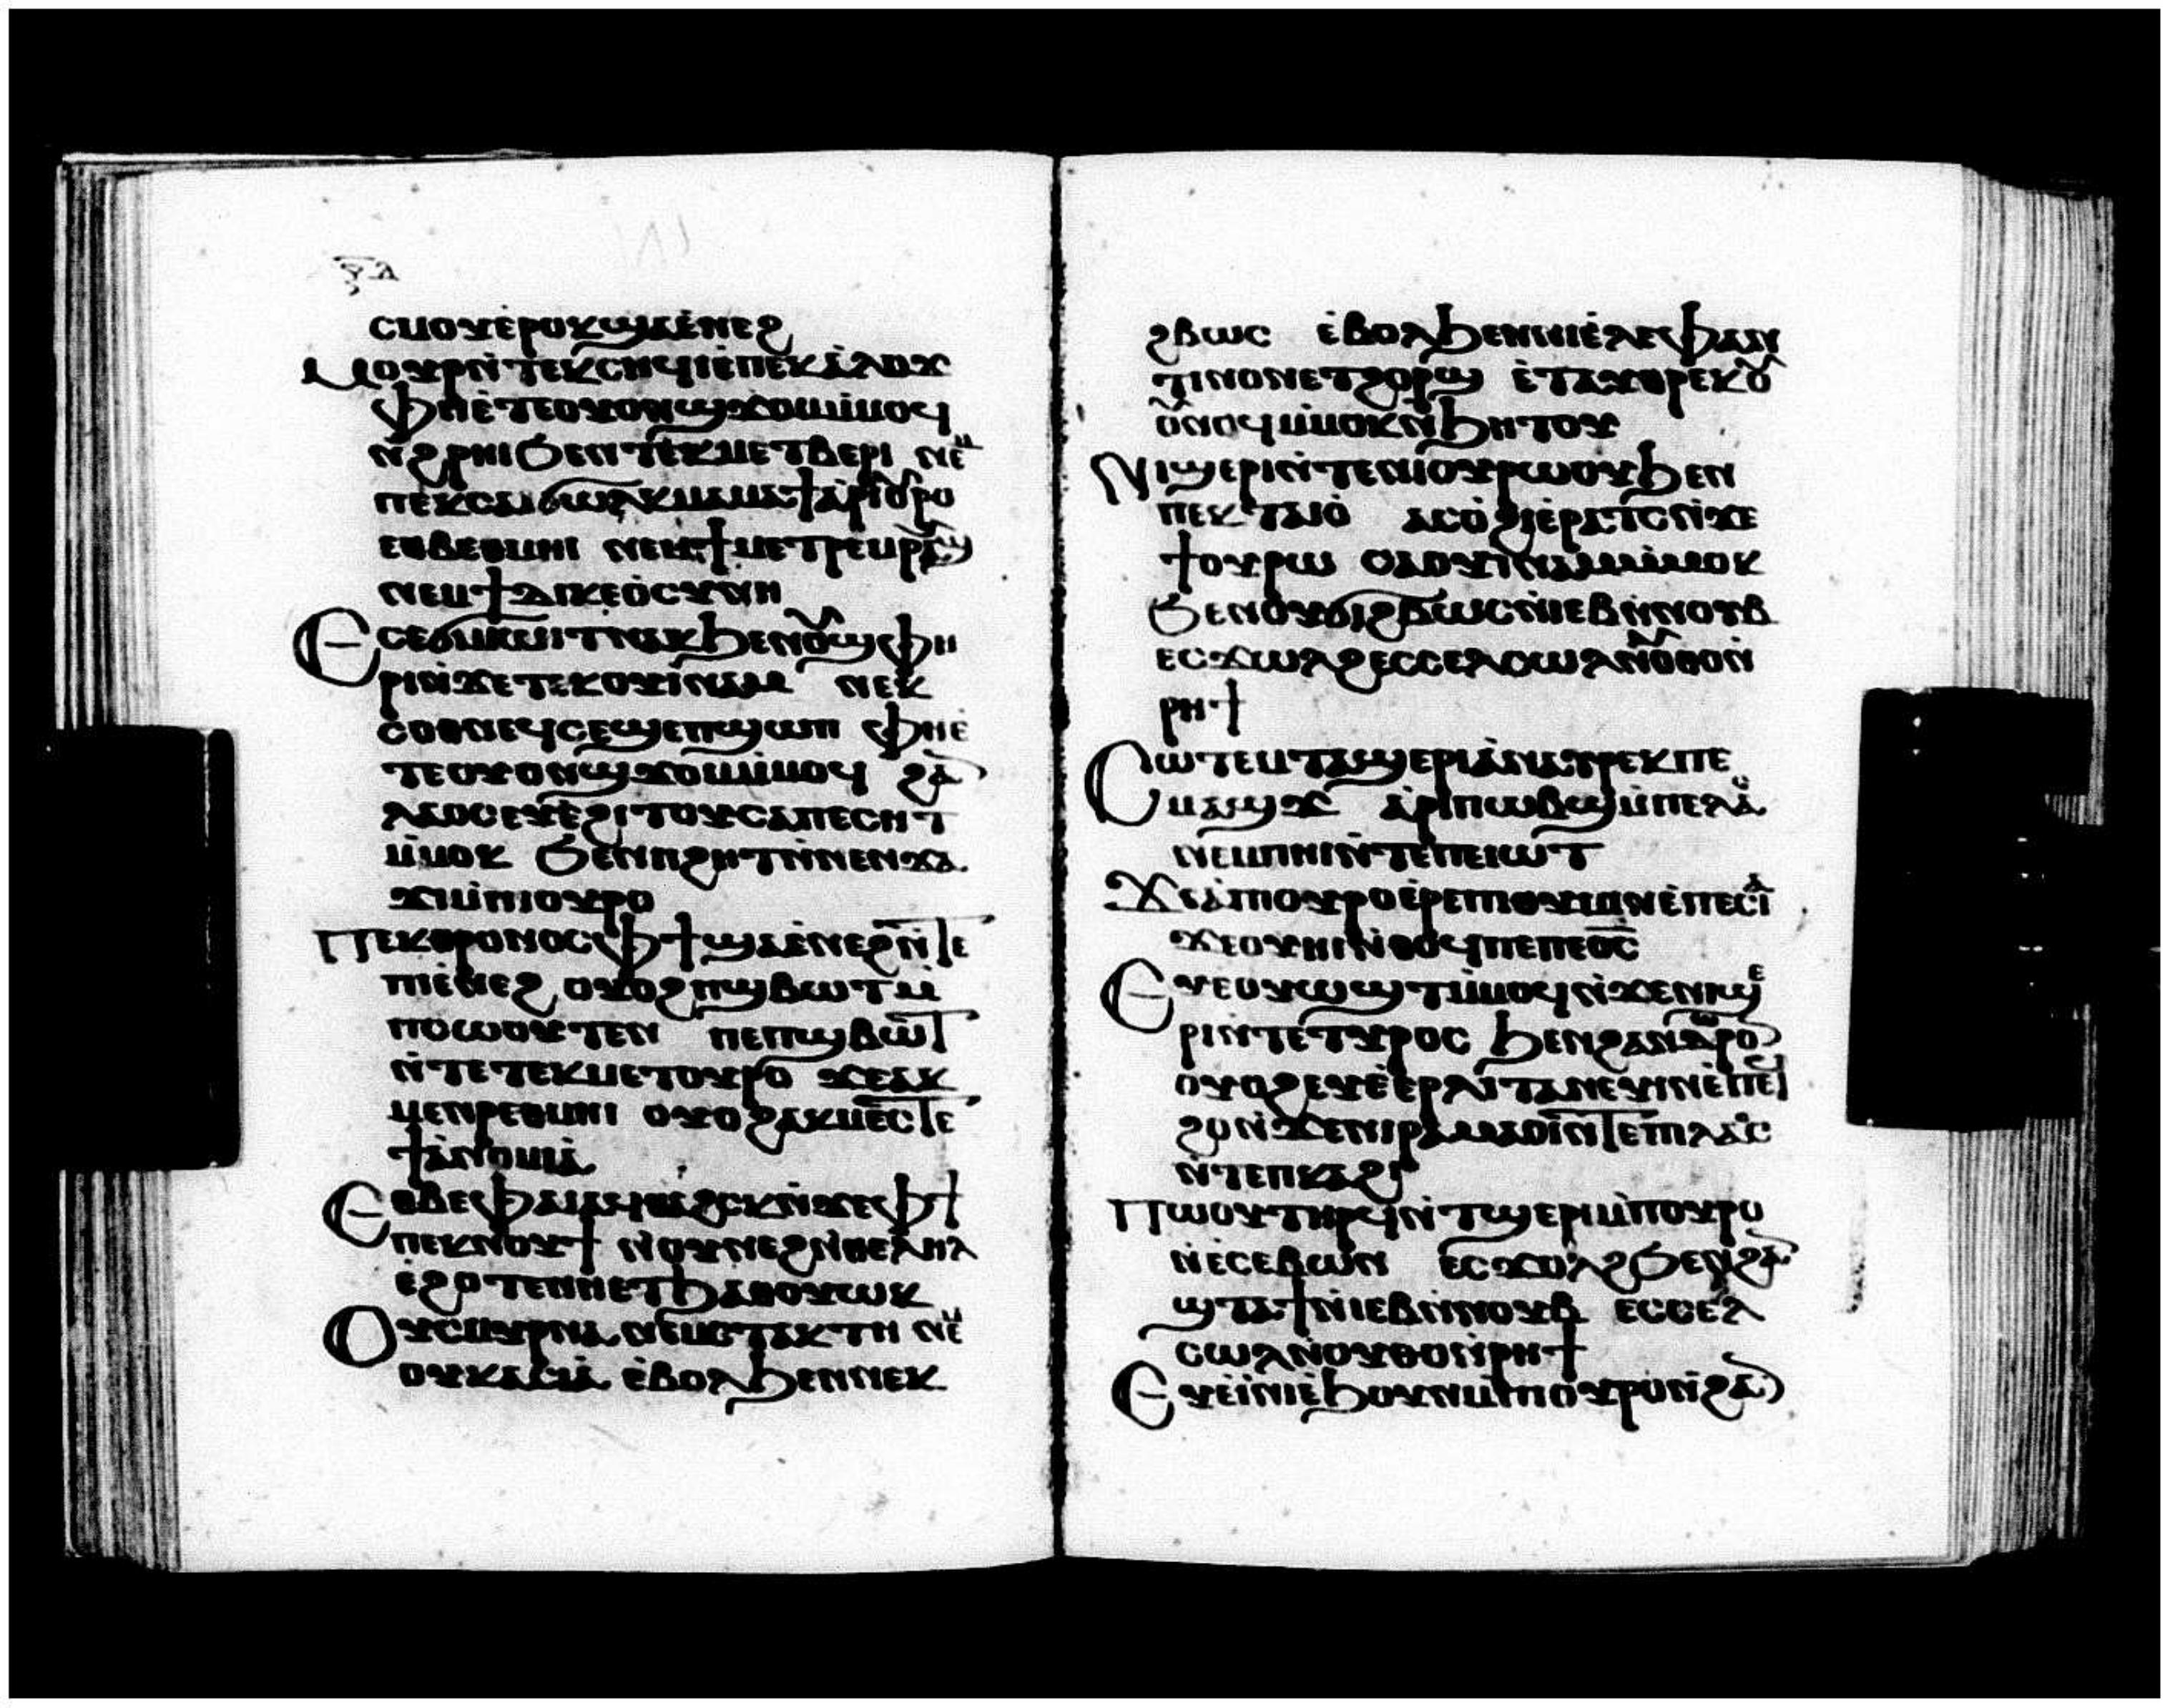 ⲥⲙⲟⲩⲉ̇ⲣⲟⲕϣⲁⲉ̇ⲛⲉϩ
Ⲙⲟⲩⲣⲛ̇ⲧⲉⲕⲥⲏϥⲓⲉ̇ⲡⲉⲕⲁ̇ⲗⲟϫ
ⲫⲏⲉ̇ⲧⲉⲟⲩⲟⲛϣϫⲟⲙⲙ̇ⲙⲟϥ
ⲛ̇ϩⲣⲏⲓϧⲉⲛⲧⲉⲕⲙⲉⲧⲃⲉⲣⲓ ⲛⲉⲙ
ⲡⲉⲕⲥⲁⲓ ϭⲱⲗⲕⲙⲁⲙⲁϯ ⲁ̇ⲣⲓⲟⲩⲣⲟ
ⲉⲑⲃⲉⲑⲙⲏⲓ ⲛⲉⲙϯⲙⲉⲧⲣⲉⲙⲣⲁⲩϣ
ⲛⲉⲙϯⲇⲓⲕⲉⲟ̇ⲥⲩⲛⲏ
Ⲉⲥⲉϭⲓⲙⲱⲓⲧⲛⲁⲕϧⲉⲛⲟⲩϣⲫⲏ
ⲣⲓⲛ̇ϫⲉⲧⲉⲕⲟⲩⲓ̇ⲛⲁⲙ ⲛⲉⲕ
ⲥⲟⲑⲛⲉϥⲥⲉϣⲉⲡϣⲱⲡ ⲫⲏⲉ̇
ⲧⲉⲟⲩⲟⲛϣϫⲟⲙⲙ̇ⲙⲟϥ ϩⲁⲛ
ⲗⲁⲟⲥⲉⲩⲉ̇ϩⲓⲧⲟⲩⲥⲁⲡⲉⲥⲏⲧ
ⲙ̇ⲙⲟⲕ ϧⲉⲛⲡϩⲏⲧⲛ̇ⲛⲉⲛϫⲁ
ϫⲓⲙ̇ⲡⲓⲟⲩⲣⲟ
Ⲡⲉⲕⲑⲣⲟⲛⲟⲥⲫϯϣⲁⲉ̇ⲛⲉϩⲛ̇ⲧⲉ
ⲡⲓⲉ̇ⲛⲉϩ ⲟⲩⲟϩⲡϣⲃⲱⲧⲙ̇
ⲡⲥⲱⲟⲩⲧⲉⲛ ⲡⲉⲡϣⲃⲱⲧ
ⲛ̇ⲧⲉⲧⲉⲕⲙⲉⲧⲟⲩⲣⲟ ϫⲉⲁⲕ
ⲙⲉⲛⲣⲉⲑⲙⲏⲓ ⲟⲩⲟϩⲁⲕⲙⲉⲥⲧⲉ
ϯⲁ̇ⲛⲟⲙⲓⲁ̇
Ⲉⲑⲃⲉⲫⲁⲓⲁϥⲑⲁϩⲥⲕⲛ̇ϫⲉⲫϯ
ⲡⲉⲕⲛⲟⲩϯ ⲛ̇ⲟⲩⲛⲉϩⲛ̇ⲑⲉⲗⲏⲗ
ⲉ̇ϩⲟⲧⲉⲛⲏⲉⲧϧⲁⲑⲟⲩⲱⲕ
Ⲟⲩⲥⲙⲩⲣⲛⲁ ⲛⲉⲙⲥⲧⲁⲕⲧⲏ ⲛⲉⲙ
ⲟⲩⲕⲁⲥⲓⲁ̇ ⲉ̇ⲃⲟⲗϧⲉⲛⲛⲉⲕ
ϩⲃⲱⲥ ⲉ̇ⲃⲟⲗϧⲉⲛⲛⲓⲉ̇ⲗⲉⲫⲁⲛ
ⲧⲓⲛⲟⲛⲉⲧϩⲟⲣϣ ⲉ̇ⲧⲁⲩⲑⲣⲉⲕⲟⲩ
ⲟ̇ⲛⲟϥⲙ̇ⲙⲟⲕⲛ̇ϧⲏⲧⲟⲩ
Ⲛⲓϣⲉⲣⲓⲛ̇ⲧⲉⲛⲓⲟⲩⲣⲱⲟⲩϧⲉⲛ
ⲡⲉⲕⲧⲁⲓⲟ̇ ⲁⲥⲟ̇ϩⲓⲉ̇ⲣⲁⲧⲥⲛ̇ϫⲉ
ϯⲟⲩⲣⲱ ⲥⲁⲟⲩⲓⲛⲁⲙⲙ̇ⲙⲟⲕ
ϧⲉⲛⲟⲩϩⲓϩⲃⲱⲥⲛ̇ⲓⲉⲃⲛ̇ⲛⲟⲩⲃ
ⲉⲥϫⲱⲗϩⲉⲥⲥⲉⲗⲥⲱⲗⲛ̇ⲟⲑⲟⲛ̇
ⲣⲏϯ
Ⲥⲱⲧⲉⲙⲧⲁϣⲉⲣⲓⲁ̇ⲛⲁⲩⲣⲉⲕⲡⲉ
ⲙⲁϣϫ ⲁ̇ⲣⲓⲡⲱⲃϣⲙ̇ⲡⲉⲗⲁⲟⲥ
ⲛⲉⲙⲡⲏⲓⲛ̇ⲧⲉⲡⲉⲓⲱⲧ
Ϫⲉⲁ̇ⲡⲟⲩⲣⲟⲉ̇ⲣⲉⲡⲓⲑⲩⲙⲓⲛⲉ̇ⲡⲉⲥⲁⲓ
ϫⲉⲟⲩⲏⲓⲛ̇ⲑⲟϥⲡⲉⲡⲉⲟ̅ⲥ̅
Ⲉⲩⲉⲟⲩⲱϣⲧⲙ̇ⲙⲟϥⲛ̇ϫⲉⲛⲓϣⲉ
ⲣⲓⲛ̇ⲧⲉⲧⲩⲣⲟⲥ ϧⲉⲛϩⲁⲛⲇⲱⲣⲟⲛ
ⲟⲩⲟϩⲉⲩⲉ̇ⲉⲣⲗⲓⲧⲁⲛⲉⲩⲓⲛⲉ̇ⲡⲉϥ
ϩⲟⲛ̇ϫⲉⲛⲓⲣⲁⲙⲁⲟ̇ⲓⲛ̇ⲧⲉⲡⲗⲁⲟⲥ
ⲛ̇ⲧⲉⲡⲕⲁϩⲓ
Ⲡⲱⲟⲩⲧⲏⲣϥⲛ̇ⲧϣⲉⲣⲓⲙ̇ⲡⲟⲩⲣⲟ
ⲛ̇ⲉⲥⲉⲃⲱⲛ ⲉⲥϫⲟⲗϩϧⲉⲛϩⲁⲛ
ϣⲧⲁϯⲛ̇ⲓⲉⲃⲛ̇ⲛⲟⲩⲃ ⲉⲥⲥⲉⲗ
ⲥⲱⲗⲛ̇ⲟⲩⲑⲟⲛ̇ⲣⲏϯ
Ⲉⲩⲉ̇ⲓⲛⲓⲉ̇ϧⲟⲩⲛⲙ̇ⲡⲟⲩⲣⲟⲛ̇ϩⲁⲛ